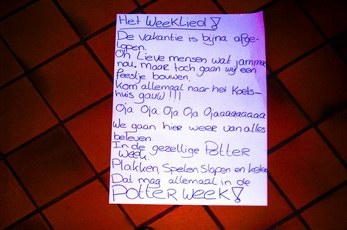 Het WeekLied!
De vakantie is bijna afge-
lopen.
Oh Lieve mensen wat jammer
nou, maar toch gaan wij een
feestje bouwen.
Kom allemaal naar het Koets-
huis gauw!!!
Oja Oja Oja Oja Ojaaaaaaaaa
We gaan hier weer van alles
beleven
In de gezellige Potter
week
Plakken, Spelen, Slapen en
Dat mag allemaal in de
Potter week!